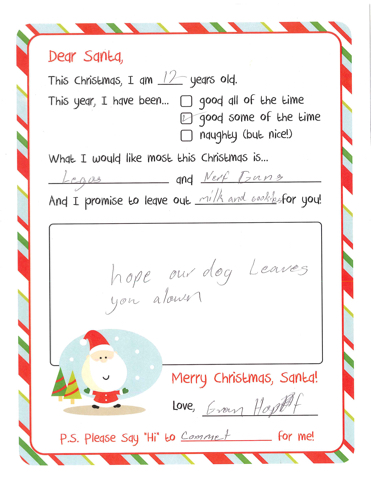 Dear Santa,
This Christmas, I am 12 years old.
This year, I have been... good all of the time
good some of the time
naughty (but nice!)
What I would like most this Christmas is...
Legos and Nerf Guns
And I promise to leave out milk and cookies for you!
hope our dog Leaves
you alown
Merry Christmas, Santa!
Love,
P.S. Please Say "Hi" to Commet for me!